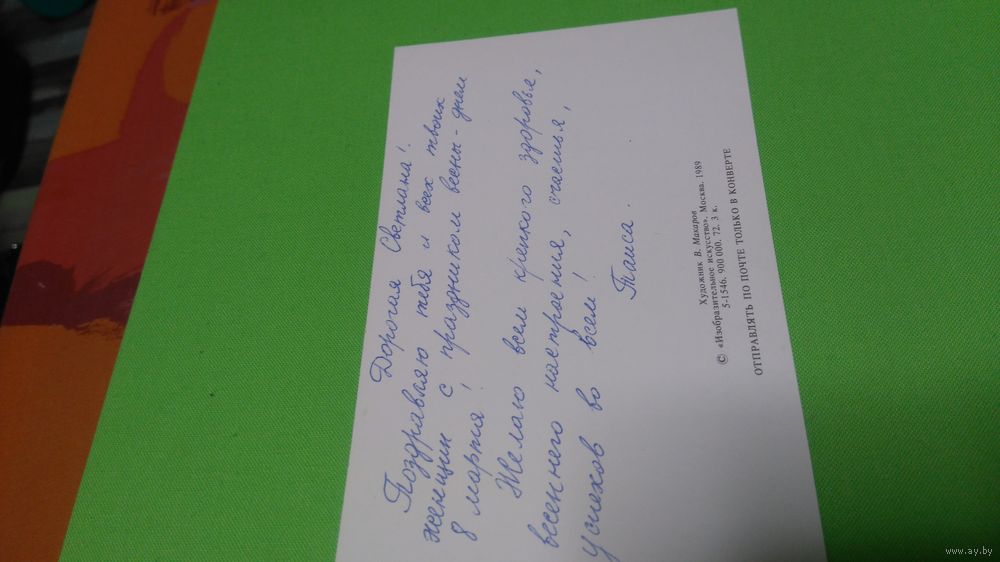 Дорогая Светлана!
Поздравляю тебя и всех твоих
женщин с праздником весны - днем
8 марта!
Желаю всем крепкого здоровья,
весеннего настроения, счастья,
успехов во всем!
Таиса.
Художник В. Макаров
© «Изобразительное искусство». Москва. 1989
5-1546. 900 000. 72. 3 к.
ОТПРАВЛЯТЬ ПО ПОЧТЕ ТОЛЬКО В КОНВЕРТЕ
www.ay.by